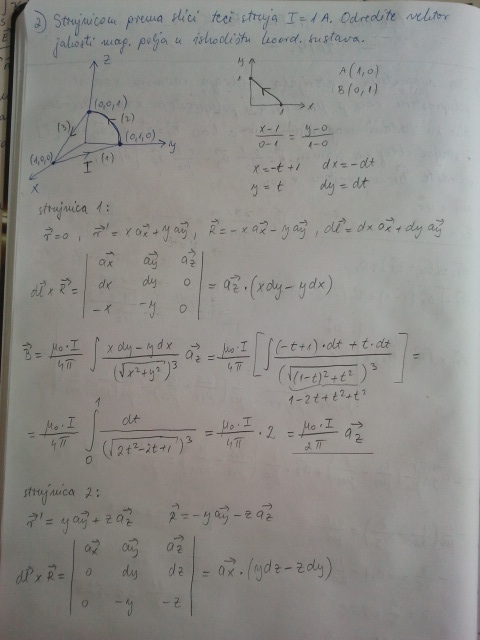 2) Strujnicom prema slici teči struja I = 1 A. Odredite vektor
jakosti mag. polja u ishodištu koord. sustava.
z
(0,0,1)
(2)
(3)
(0,1,0)
y
(1,0,0)
I
(1)
x
y
1
1
x
A(1,0)
B(0,1)
x-1/0-1 = y-0/1-0
x = -t+1 dx = -dt
y = t dy = dt
strujnica 1:
r⃗ = 0, r⃗' = x ax⃗ + y ay⃗, R⃗ = -x ax⃗ - y ay⃗, dl⃗ = dx ax⃗ + dy ay⃗
dl⃗ × R⃗ = | ax⃗ ay⃗ az⃗ |
| dx dy 0 | = az⃗ · (x dy - y dx)
| -x -y 0 |
B⃗ = μ0·I/4π ∫ (x dy - y dx)/(√(x²+y²))³ az⃗ = μ0·I/4π [ ∫ ((-t+1)·dt + t·dt)/(√((1-t)²+t²))³ ] =
1-2t+t²+t²
= μ0·I/4π ∫₀¹ dt/(√(2t²-2t+1))³ = μ0·I/4π · 2 = μ0·I/2π az⃗
strujnica 2:
r⃗' = y ay⃗ + z az⃗ R⃗ = -y ay⃗ - z az⃗
dl⃗ × R⃗ = | ax⃗ ay⃗ az⃗ |
| 0 dy dz | = ax⃗ · (y dz - z dy)
| 0 -y -z |